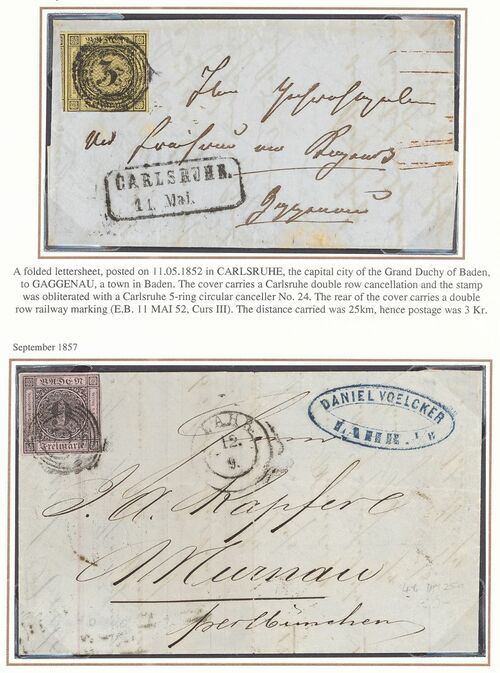 BADEN
3
CARLSRUHE.
11. Mai.
Gaggenau
A folded lettersheet, posted on 11.05.1852 in CARLSRUHE, the capital city of the Grand Duchy of Baden,
to GAGGENAU, a town in Baden. The cover carries a Carlsruhe double row cancellation and the stamp
was obliterated with a Carlsruhe 5-ring circular canceller No. 24. The rear of the cover carries a double
row railway marking (E.B. 11 MAI 52, Curs III). The distance carried was 25km, hence postage was 3 Kr.
September 1857
BADEN
9
Freimarke
LAHR
12.
9.
DANIEL VOELCKER
LAHR
J. A. Kapferl
Murnau
per München